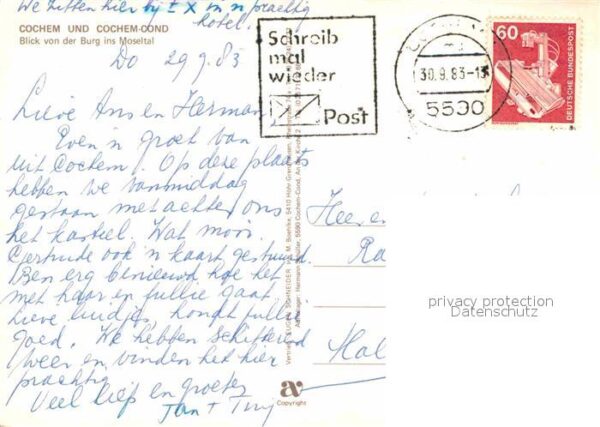 We zitten hier bij in 'n prachtig
hotel.
COCHEM UND COCHEM-COND
Blick von der Burg ins Moseltal
Do 29.9.83
Schreib
mal
wieder
Post
30.9.83-1
5590
60
DEUTSCHE BUNDESPOST
Lieve Ans en Herman,
Even 'n groet van
uit Cochem. Op deze plaats
hebben we vanmiddag
gestaan met achter ons
het kasteel. Wat mooi.
Gertrude ook 'n kaart gestuurd.
Ben erg benieuwd hoe het
met haar en jullie gaat.
Lieve luidjes, houdt jullie
goed. We hebben schitterend
weer en vinden het hier
prachtig.
Veel liefs en groetjes
Heer en
Ra
Hal
Copyright
privacy protection
Datenschutz